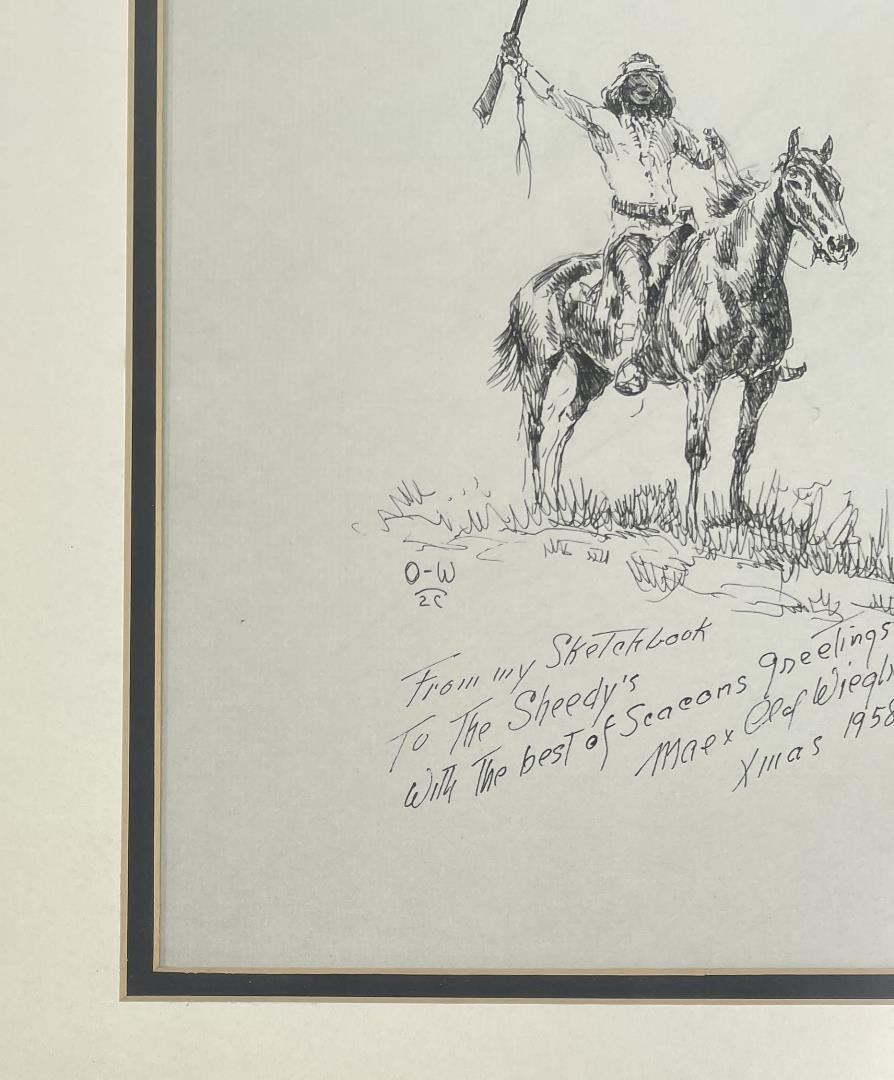 O-W
2C
From my Sketchbook
To The Sheedy's
With The best of Seacons greetings
Mae x Olaf Wiegh
Xmas 1958